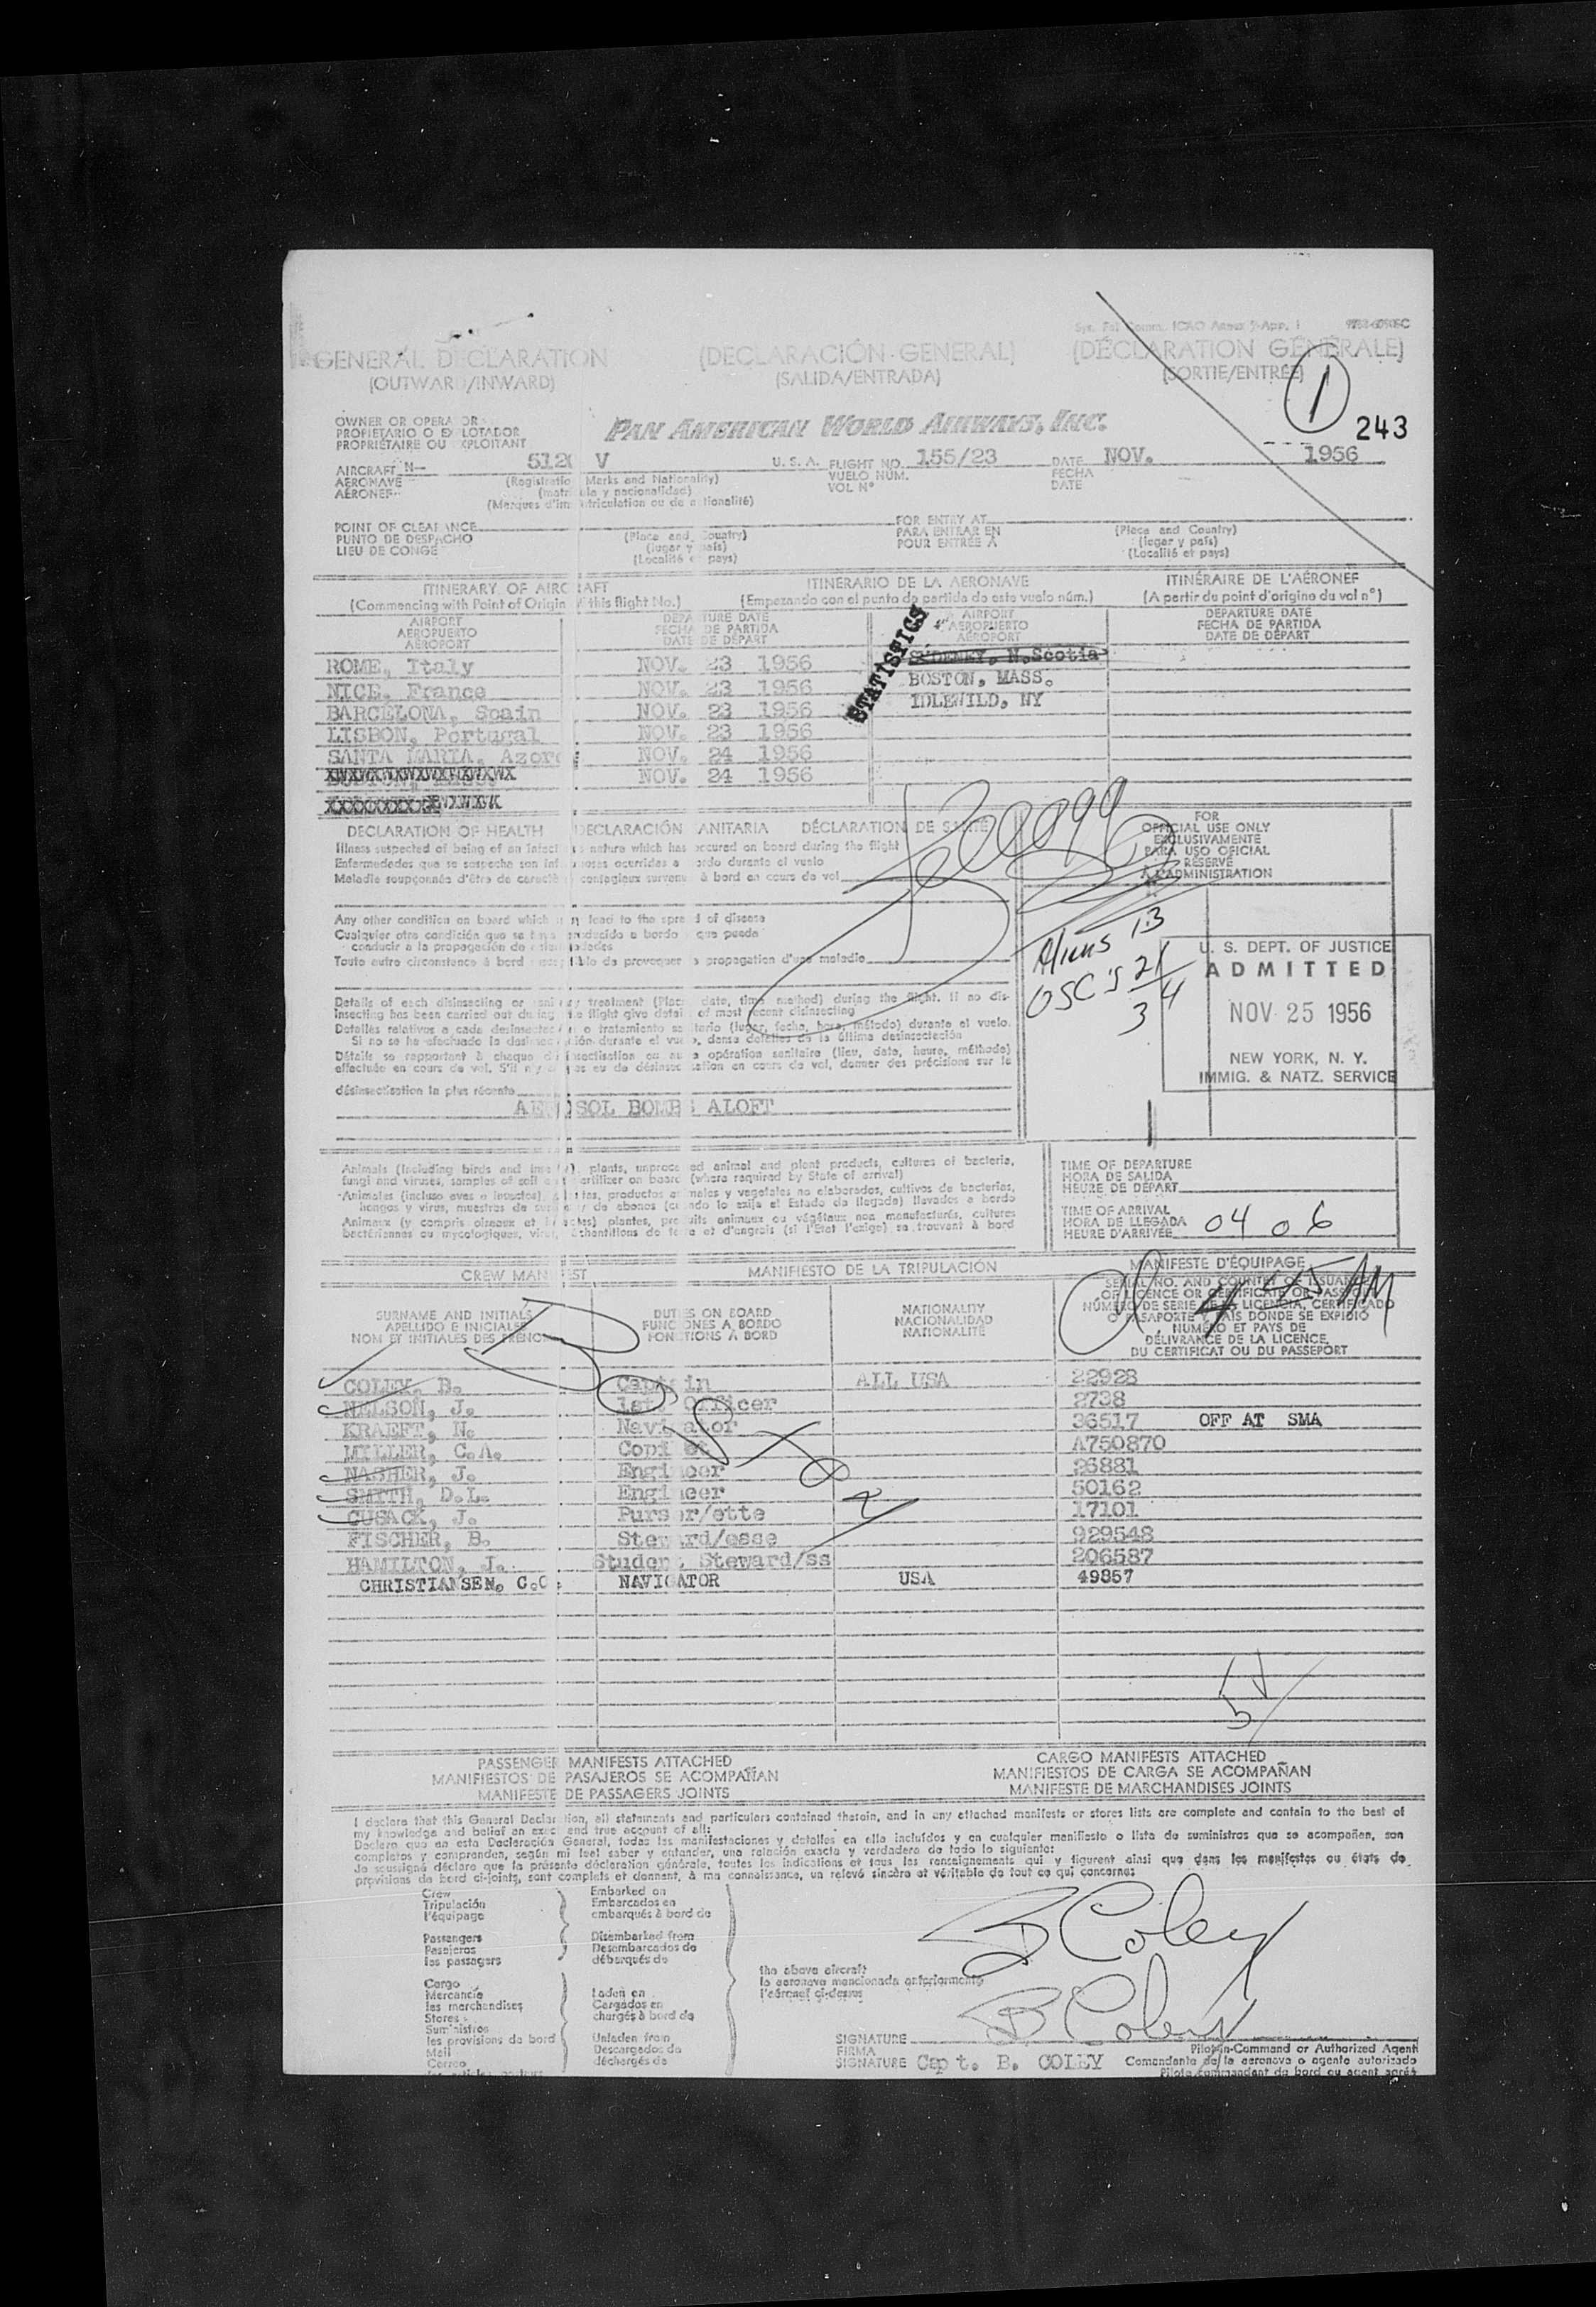 Sys. Fal Comm. ICAO Annex 9-App. 1
GENERAL DECLARATION (DECLARACIÓN GENERAL) (DÉCLARATION GÉNÉRALE)
(OUTWARD/INWARD) (SALIDA/ENTRADA) (SORTIE/ENTRÉE)
1
243
OWNER OR OPERATOR
PROPIETARIO O EXPLOTADOR
PROPRIÉTAIRE OU EXPLOITANT
PAN AMERICAN WORLD AIRWAYS, INC.
AIRCRAFT N— 512 V U. S. A. FLIGHT NO. 155/23 DATE NOV. 1956
AERONAVE (Registration Marks and Nationality) VUELO NÚM. FECHA
AÉRONEF (matrícula y nacionalidad) VOL Nº DATE
(Marques d'immatriculation ou de nationalité)
POINT OF CLEARANCE FOR ENTRY AT
PUNTO DE DESPACHO (Place and Country) PARA ENTRAR EN (Place and Country)
LIEU DE CONGÉ (lugar y país) POUR ENTRÉE À (lugar y país)
(Localité et pays) (Localité et pays)
ITINERARY OF AIRCRAFT ITINERARIO DE LA AERONAVE ITINÉRAIRE DE L'AÉRONEF
(Commencing with Point of Origin of this flight No.) (Empezando con el punto de partida de este vuelo núm.) (A partir du point d'origine du vol nº)
AIRPORT DEPARTURE DATE AIRPORT DEPARTURE DATE
AEROPUERTO FECHA DE PARTIDA AEROPUERTO FECHA DE PARTIDA
AÉROPORT DATE DE DÉPART AÉROPORT DATE DE DÉPART
STATISTICS
ROME, Italy NOV. 23 1956 SYDENEY, N.Scotia
NICE, France NOV. 23 1956 BOSTON, MASS.
BARCELONA, Spain NOV. 23 1956 IDLEWILD, NY
LISBON, Portugal NOV. 23 1956
SANTA MARIA, Azores NOV. 24 1956
NOV. 24 1956
DECLARATION OF HEALTH DECLARACIÓN SANITARIA DÉCLARATION DE SANTÉ
Illness suspected of being of an infectious nature which has occured on board during the flight
Enfermedades que se sospecha son infecciosas ocurridas a bordo durante el vuelo
Maladie soupçonnée d'être de caractère contagieux survenu à bord en cours de vol
FOR
OFFICIAL USE ONLY
EXCLUSIVAMENTE
PARA USO OFICIAL
RÉSERVÉ
À L'ADMINISTRATION
Any other condition on board which may lead to the spread of disease
Cualquier otra condición que se haya producido a bordo que pueda
conducir a la propagación de enfermedades
Toute autre circonstance à bord susceptible de provoquer la propagation d'une maladie
Aliens 13
USC'S 21
34
U. S. DEPT. OF JUSTICE
ADMITTED
NOV 25 1956
NEW YORK, N. Y.
IMMIG. & NATZ. SERVICE
Details of each disinsecting or sanitary treatment (Place, date, time, method) during the flight. If no dis-
insecting has been carried out during the flight give details of most recent disinsecting
Detalles relativos a cada desinsectación o tratamiento sanitario (lugar, fecha, hora, método) durante el vuelo.
Si no se ha efectuado la desinsectación durante el vuelo, dense detalles de la última desinsectación
Détails se rapportant à chaque désinsectisation ou autre opération sanitaire (lieu, date, heure, méthode)
effectuée en cours de vol. S'il n'y a pas eu de désinsectisation en cours de vol, donner des précisions sur la
désinsectisation la plus récente
AEROSOL BOMBS ALOFT
Animals (Including birds and insects), plants, unprocessed animal and plant products, cultures of bacteria,
fungi and viruses, samples of soil or fertilizer on board (where required by State of arrival)
Animales (incluso aves e insectos), plantas, productos animales y vegetales no elaborados, cultivos de bacterias,
hongos y virus, muestras de suelo y de abonos (cuando lo exija el Estado de llegada) llevados a bordo
Animaux (y compris oiseaux et insectes) plantes, produits animaux ou végétaux non manufacturés, cultures
bactériennes ou mycologiques, virus, échantillons de terre et d'engrais (si l'État l'exige) se trouvant à bord
TIME OF DEPARTURE
HORA DE SALIDA
HEURE DE DÉPART
TIME OF ARRIVAL
HORA DE LLEGADA 0406
HEURE D'ARRIVÉE
CREW MANIFEST MANIFIESTO DE LA TRIPULACIÓN MANIFESTE D'ÉQUIPAGE
4 45 AM
SURNAME AND INITIALS DUTIES ON BOARD NATIONALITY SERIAL NO. AND COUNTRY OF ISSUANCE
APELLIDO E INICIALES FUNCIONES A BORDO NACIONALIDAD OF LICENCE OR CERTIFICATE OR PASSPORT
NOM ET INITIALES DES PRÉNOMS FONCTIONS À BORD NATIONALITÉ NÚMERO DE SERIE DE LA LICENCIA, CERTIFICADO
O PASAPORTE Y PAÍS DONDE SE EXPIDIÓ
NUMÉRO ET PAYS DE
DÉLIVRANCE DE LA LICENCE,
DU CERTIFICAT OU DU PASSEPORT
COLEY, B. Captain ALL USA 22928
NELSON, J. 1st Officer 2738
KRAEFT, N. Navigator 36517 OFF AT SMA
MILLER, C.A. Copilot A750870
NASHER, J. Engineer 26881
SMITH, D.L. Engineer 50162
CUSACK, J. Purser/ette 17101
FISCHER, B. Steward/esse 929548
HAMILTON, J. Student Steward/ss 206587
CHRISTIANSEN, C.C. NAVIGATOR USA 49857
PASSENGER MANIFESTS ATTACHED CARGO MANIFESTS ATTACHED
MANIFIESTOS DE PASAJEROS SE ACOMPAÑAN MANIFIESTOS DE CARGA SE ACOMPAÑAN
MANIFESTE DE PASSAGERS JOINTS MANIFESTE DE MARCHANDISES JOINTS
I declare that this General Declaration, all statements and particulars contained therein, and in any attached manifests or stores lists are complete and contain to the best of
my knowledge and belief an exact and true account of all:
Declaro que en esta Declaración General, todas las manifestaciones y detalles en ella incluídos y en cualquier manifiesto o lista de suministros que se acompañen, son
completos y comprenden, según mi leal saber y entender, una relación exacta y verdadera de todo lo siguiente:
Je soussigné déclare que la présente déclaration générale, toutes les indications et tous les renseignements qui y figurent ainsi que dans les manifestes ou états de
provisions de bord ci-joints, sont complets et donnent, à ma connaissance, un relevé sincère et véritable de tout ce qui concerne:
Crew Embarked on
Tripulación Embarcados en
l'équipage embarqués à bord de
Passengers Disembarked from
Pasajeros Desembarcados de
les passagers débarqués de
B Coley
the above aircraft
la aeronave mencionada anteriormente
l'aéronef ci-dessus
Cargo
Mercancía Laden on
les marchandises Cargados en
Stores chargés à bord de
Suministros
les provisions de bord Unladen from
Mail Descargados de
Correo déchargés de
B Coley
SIGNATURE Pilot-in-Command or Authorized Agent
FIRMA Comandante de la aeronave o agente autorizado
SIGNATURE Capt. B. COLEY Pilote commandant de bord ou agent agréé